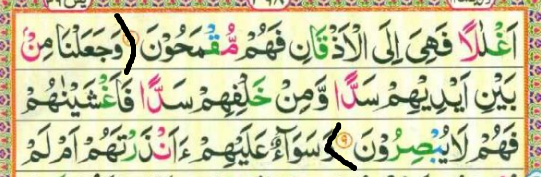 اَغْلٰلًا فَهِىَ اِلَى الْاَذْقَانِ فَهُمْ مُّقْمَحُوْنَ وَجَعَلْنَا مِنْۢ
بَيْنِ اَيْدِيْهِمْ سَدًّا وَّمِنْ خَلْفِهِمْ سَدًّا فَاَغْشَيْنٰهُمْ
فَهُمْ لَا يُبْصِرُوْنَ ۹ وَسَوَآءٌ عَلَيْهِمْ ءَاَنْذَرْتَهُمْ اَمْ لَمْ